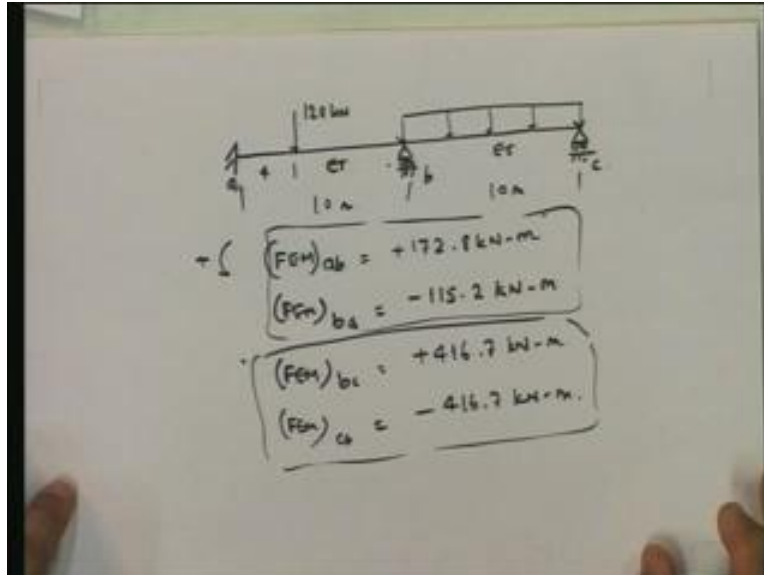 120 kN
EI EI
a 4 b c
10 m 10 m
+ (FEM)ab = +172.8 kN-m
(FEM)ba = -115.2 kN-m
(FEM)bc = +416.7 kN-m
(FEM)cb = -416.7 kN-m.